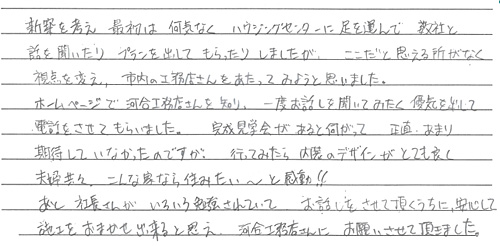 新築を考え 最初は 何気なく ハウジングセンターに足を運んで 数社と
話を聞いたり プランを出してもらったりしましたが、 ここだと思える所がなく
視点を変え、市内の工務店さんをあたってみようと思いました。
ホームページで河合工務店さんを知り、一度お話しを聞いてみたく 勇気を出して
電話をさせてもらいました。 完成見学会があると伺がって 正直 あまり
期待していなかったのですが、 行ってみたら 内装のデザインがとても良く
夫婦共々、こんな家なら住みたい〜と感動!!
あと 社長さんが いろいろ勉強されていて お話しをさせて頂くうちに、安心して
施工をおまかせ出来ると思え 河合工務店さんに お願いさせて頂きました。